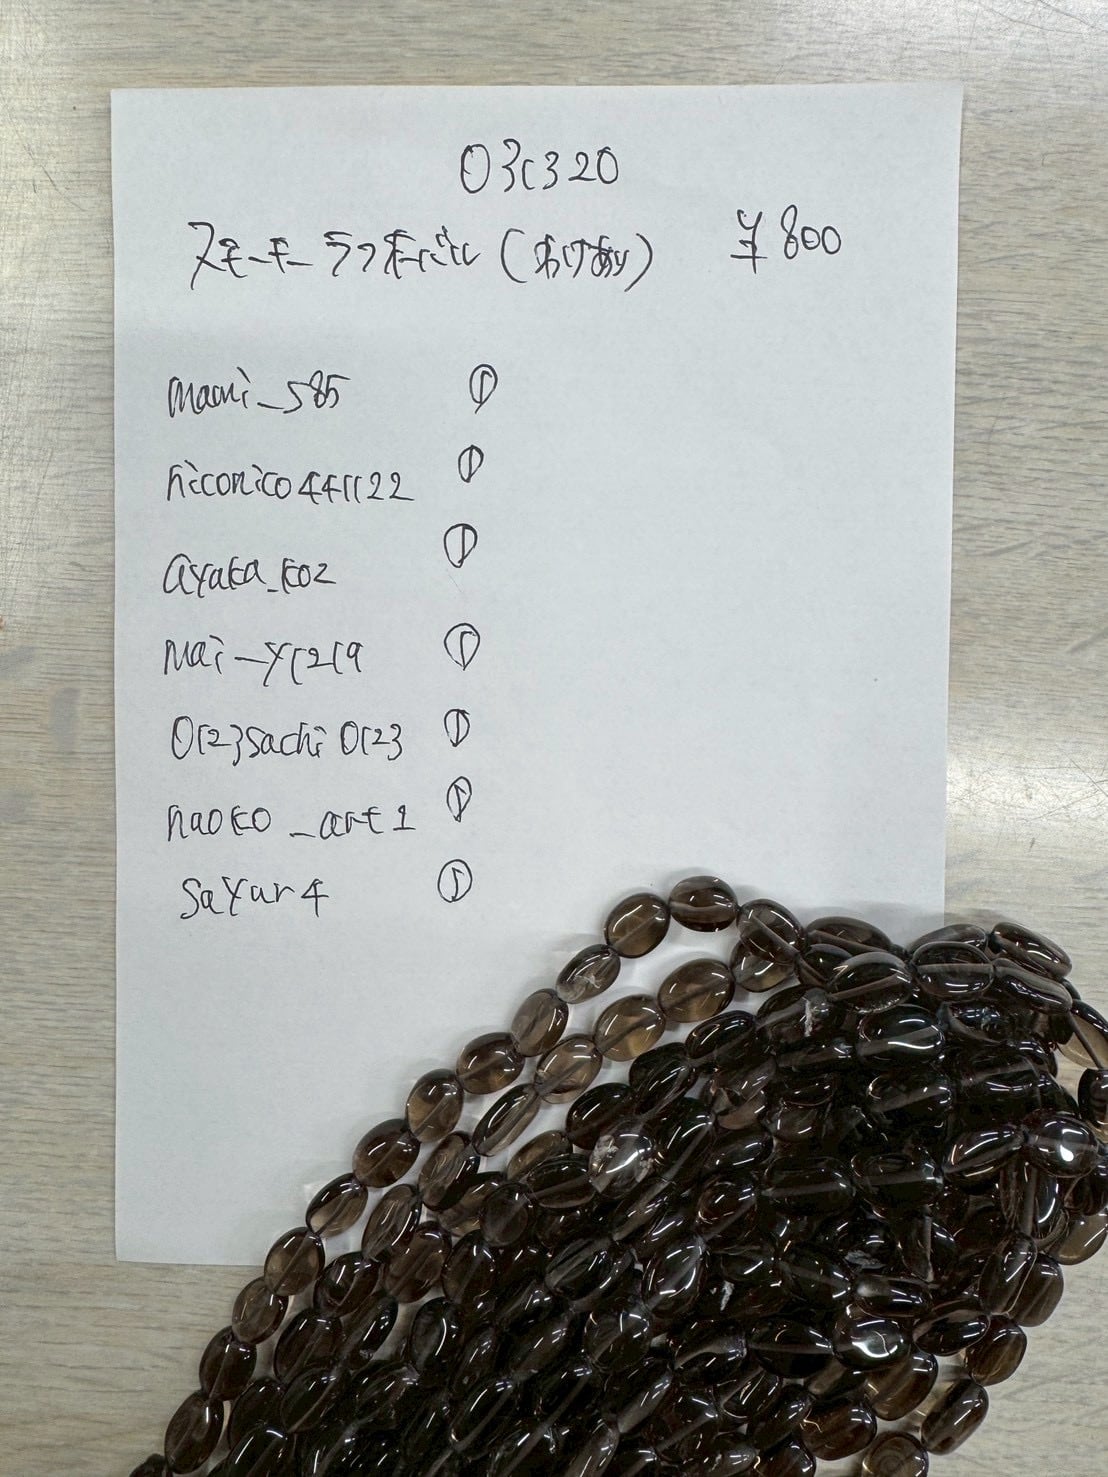 03c320
スモーキー (わけあり) ¥800
mami_585 ①
niconico441122 ①
ayaka_k02 ①
mai_y1219 ①
0123sachi0123 ①
naoko_art1 ①
sayur4 ①